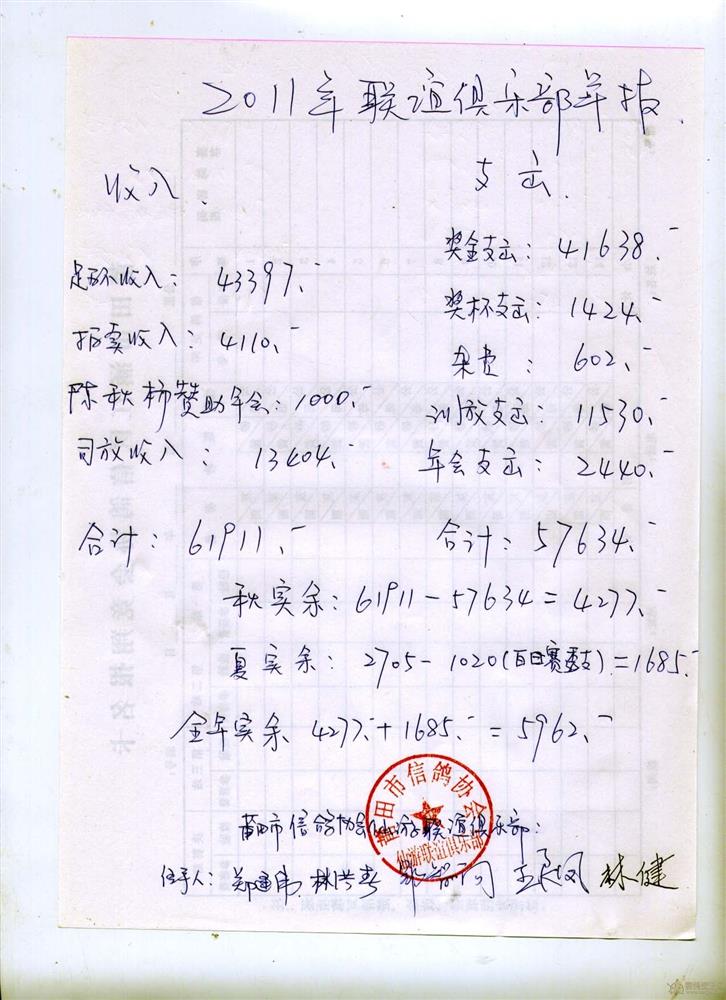 2011年联谊俱乐部年报.
收入.
支出.
奖金支出: 41638.-
足环收入: 43397.-
奖杯支出: 1424.-
拍卖收入: 4110.-
杂费: 602.-
陈秋柿赞助年会: 1000.-
训放支出: 11530.-
司放收入: 13404.-
年会支出: 2440.-
合计: 61911.-
合计: 57634.-
秋实余: 61911-57634=4277.-
夏实余: 2705-1020(百日赛透支)=1685.-
全年实余 4277.-+1685.-=5962.-
莆田市信鸽协会
仙游联谊俱乐部
莆田市信鸽协会仙游联谊俱乐部:
经手人: 郑建伟 林兰春 林健